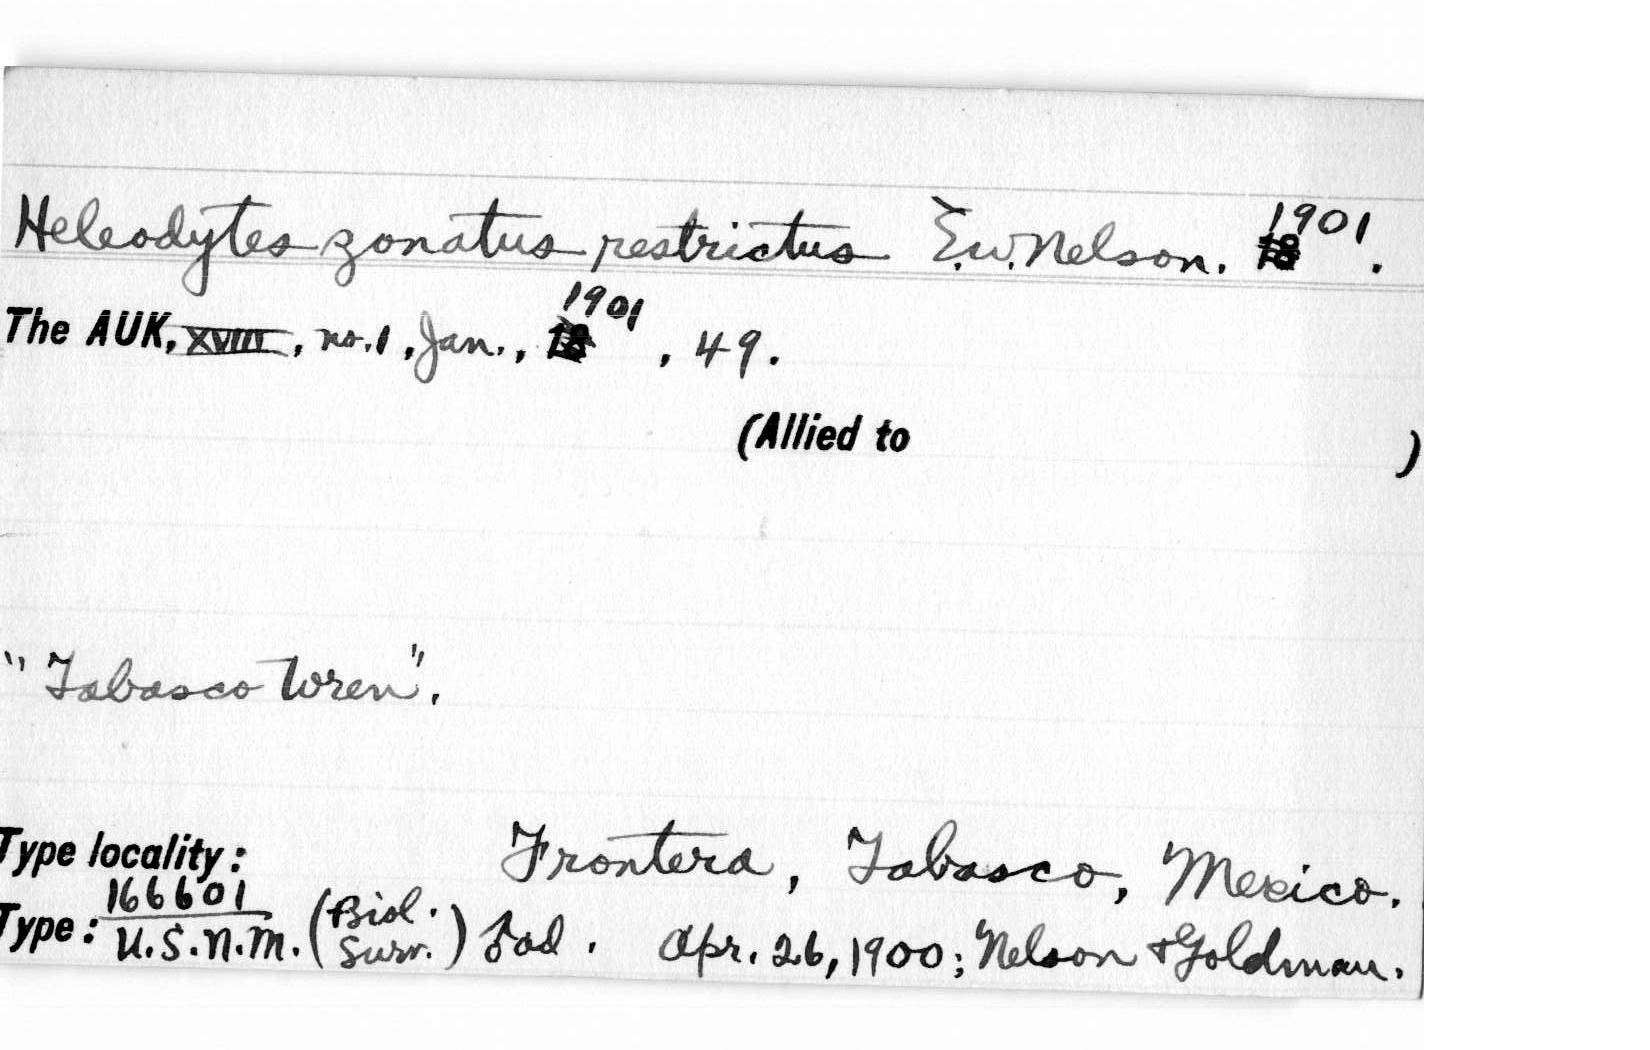 Heleodytes zonatus restrictus E.W. Nelson. 1901.
The AUK, XVIII, no. 1, Jan., 1901, 49.
(Allied to )
"Tabasco Wren".
Type locality: Frontera, Tabasco, Mexico.
166601
Type: U.S.N.M. (Biol. Surv.) ♀ad. Apr. 26, 1900; Nelson + Goldman.